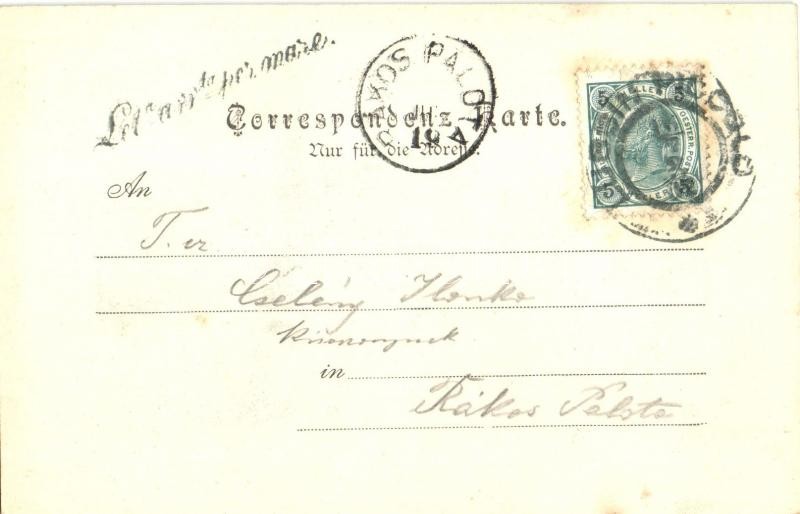 Lett. arr. per mare.
RÁKOS PALOTA
III
19
Correspondenz-Karte.
Nur für die Adresse.
5 HELLER 5
OESTERR. POST
5 HELLER 5
An
T. cz
Cselény Ilonka
kisasszonynak
in
Rákos Palota